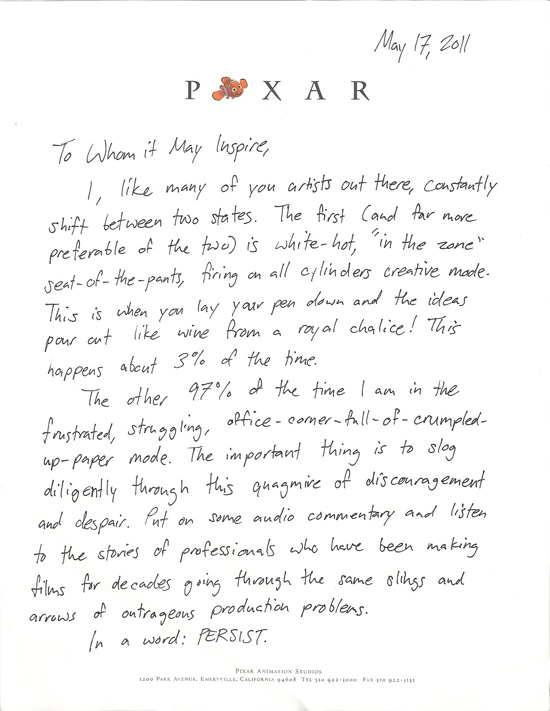 May 17, 2011
P XAR
To Whom it May Inspire,
I, like many of you artists out there, constantly
shift between two states. The first (and far more
preferable of the two) is white-hot, "in the zone"
seat-of-the-pants, firing on all cylinders creative mode.
This is when you lay your pen down and the ideas
pour out like wine from a royal chalice! This
happens about 3% of the time.
The other 97% of the time I am in the
frustrated, struggling, office-corner-full-of-crumpled-
up-paper mode. The important thing is to slog
diligently through this quagmire of discouragement
and despair. Put on some audio commentary and listen
to the stories of professionals who have been making
films for decades going through the same slings and
arrows of outrageous production problems.
In a word: PERSIST.
Pixar Animation Studios
1200 Park Avenue, Emeryville, California 94608 Tel 510 922-3000 Fax 510 922-3151